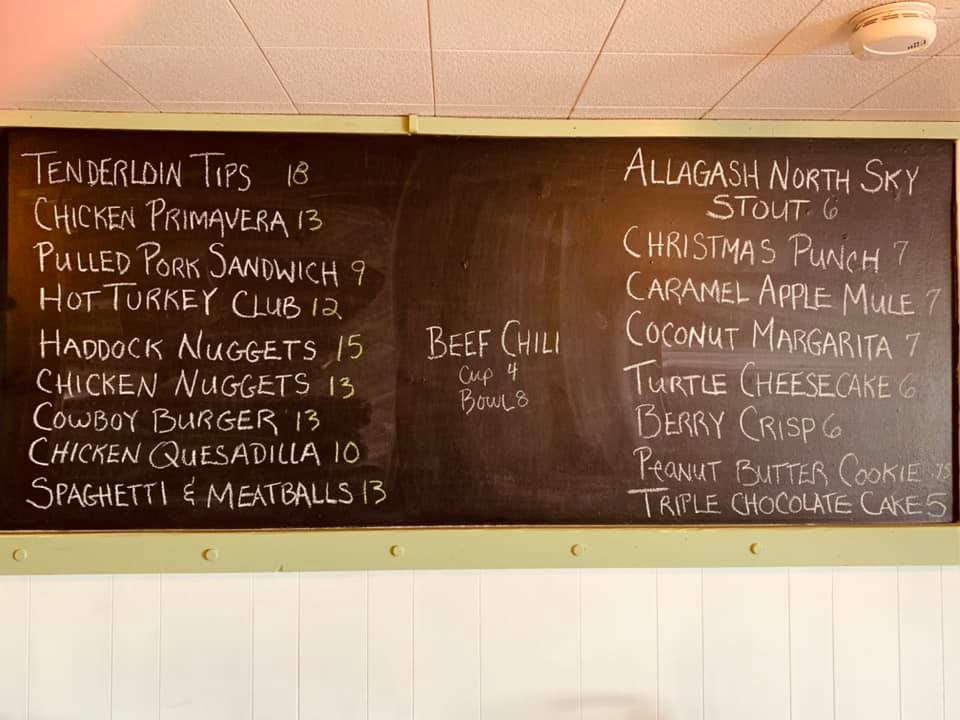 TENDERLOIN TIPS 18
CHICKEN PRIMAVERA 13
PULLED PORK SANDWICH 9
HOT TURKEY CLUB 12
HADDOCK NUGGETS 15
CHICKEN NUGGETS 13
COWBOY BURGER 13
CHICKEN QUESADILLA 10
SPAGHETTI & MEATBALLS 13
BEEF CHILI
Cup 4
BOWL 8
ALLAGASH NORTH SKY
STOUT 6
CHRISTMAS PUNCH 7
CARAMEL APPLE MULE 7
COCONUT MARGARITA 7
TURTLE CHEESECAKE 6
BERRY CRISP 6
PEANUT BUTTER COOKIE .75
TRIPLE CHOCOLATE CAKE 5